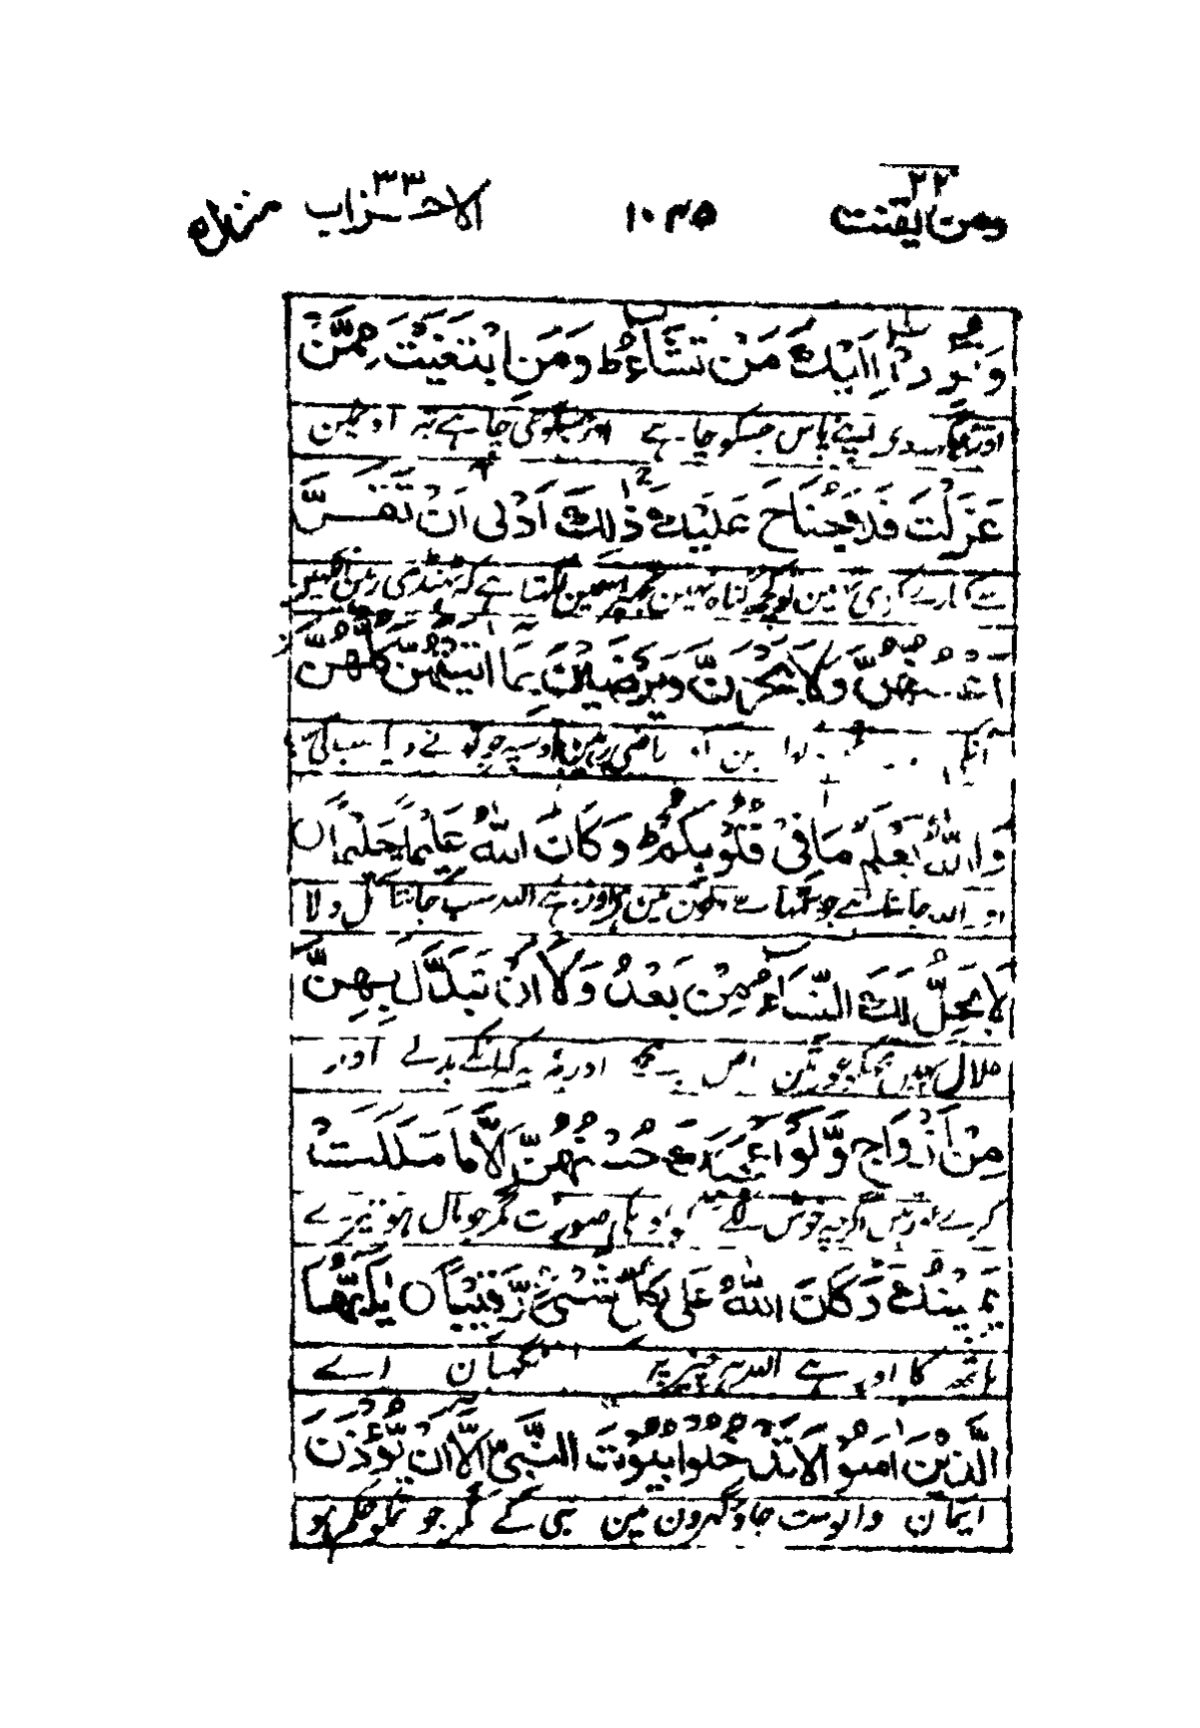 ومن یقنت ۲۲ ۱۰۴۵ الاحزاب ۳۳ منزل ۵
وَتُـْٔوِیْۤ اِلَیْكَ مَنْ تَشَآءُ ؕ وَمَنِ ابْتَغَیْتَ مِمَّنْ
اور جگہ دے اپنے پاس جسکو چاہے اور جسکو جی چاہے تیرا اونمین
عَزَلْتَ فَلَا جُنَاحَ عَلَیْكَ ؕ ذٰلِكَ اَدْنٰۤی اَنْ تَقَرَّ
کنارے کردی تہین تو کچھ گناہ نہین تجھپر اسمین لگتا ہے کہ ٹھنڈی رہین آنکھین
اَعْیُنُهُنَّ وَلَا یَحْزَنَّ وَیَرْضَیْنَ بِمَاۤ اٰتَیْتَهُنَّ كُلُّهُنَّ
انکی اور راضی رہین اوسپر جو تونے دیا سب کی
وَاللّٰهُ یَعْلَمُ مَا فِیْ قُلُوْبِكُمْ ؕ وَكَانَ اللّٰهُ عَلِیْمًا حَلِیْمًا ۝
اور اللہ جانتا ہے جو تمہارے دلون مین ہے اور ہے اللہ سب جانتا تحمل والا
لَا یَحِلُّ لَكَ النِّسَآءُ مِنْۢ بَعْدُ وَلَاۤ اَنْ تَبَدَّلَ بِهِنَّ
حلال نہیں تجھکو عورتین اس پیچھے اور نہ یہ کہ انکے بدلے اور
مِنْ اَزْوَاجٍ وَّلَوْ اَعْجَبَكَ حُسْنُهُنَّ اِلَّا مَا مَلَكَتْ
کرے عورتیں اگرچہ خوش لگے تجھکو اونکی صورت مگر جو مال ہو تیرے
یَمِیْنُكَ ؕ وَكَانَ اللّٰهُ عَلٰی كُلِّ شَیْءٍ رَّقِیْبًا ۝ یٰۤاَیُّهَا
ہاتھ کا اور ہے اللہ ہر چیز پر نگہبان اے
الَّذِیْنَ اٰمَنُوْا لَا تَدْخُلُوْا بُیُوْتَ النَّبِیِّ اِلَّاۤ اَنْ یُّؤْذَنَ
ایمان والو مت جاؤ گھرون مین نبی کے مگر جو تمکو حکم ہو